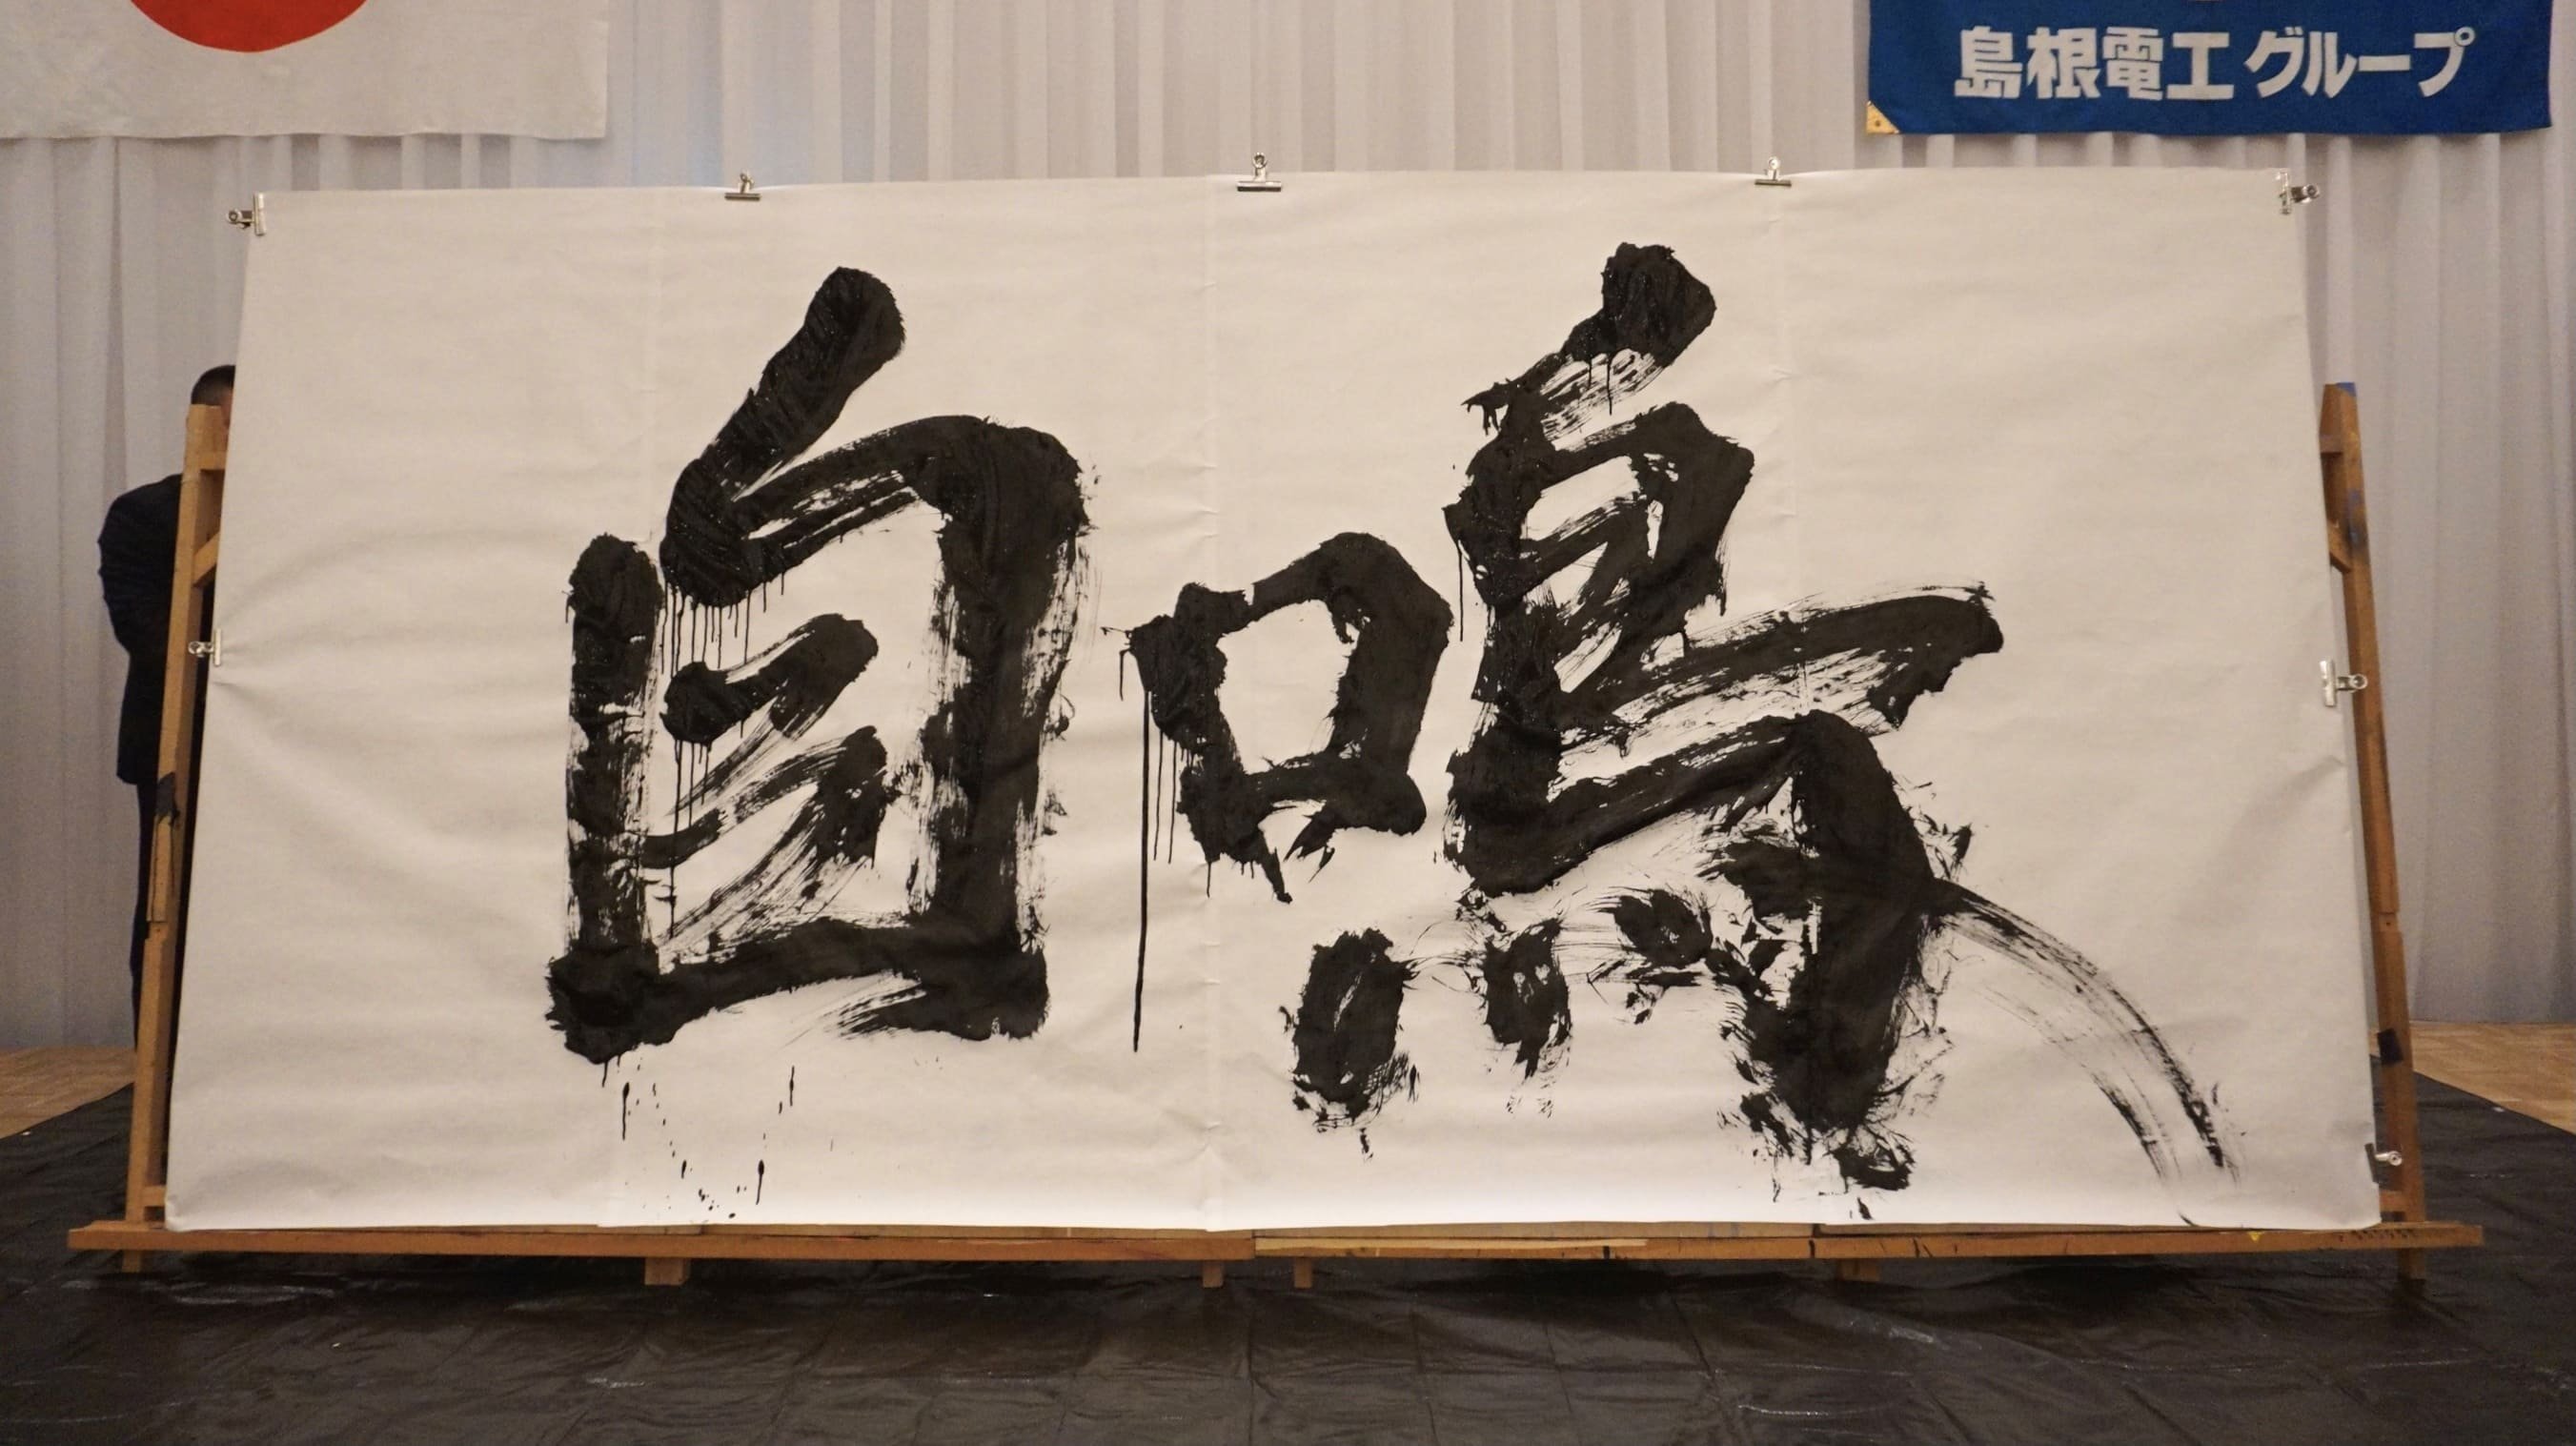 島根電工グループ
自鳴